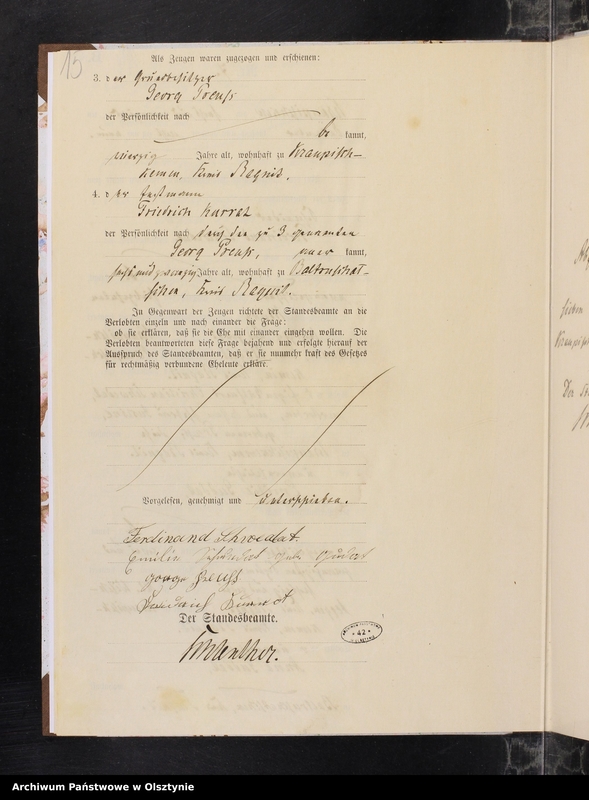 15
Als Zeugen waren zugezogen und erschienen:
3. der Grundbesitzer
Georg Preuss
der Persönlichkeit nach
be kannt,
vierzig Jahre alt, wohnhaft zu Kraupisch-
kemen, Kreis Ragnit.
4. der
Friedrich Karrat
der Persönlichkeit nach durch den zu 3 genannten
Georg Preuss, aner kannt,
sechsundzwanzig Jahre alt, wohnhaft zu
Kreis Ragnit.
In Gegenwart der Zeugen richtete der Standesbeamte an die
Verlobten einzeln und nach einander die Frage:
ob sie erklären, daß sie die Ehe mit einander eingehen wollen. Die
Verlobten beantworteten diese Frage bejahend und erfolgte hierauf der
Ausspruch des Standesbeamten, daß er sie nunmehr kraft des Gesetzes
für rechtmäßig verbundene Eheleute erkläre.
Vorgelesen, genehmigt und unterschrieben.
Ferdinand Schwedat.
Emilie geb.
George Preuss
Friedrich
Der Standesbeamte.
42
Archiwum Państwowe w Olsztynie